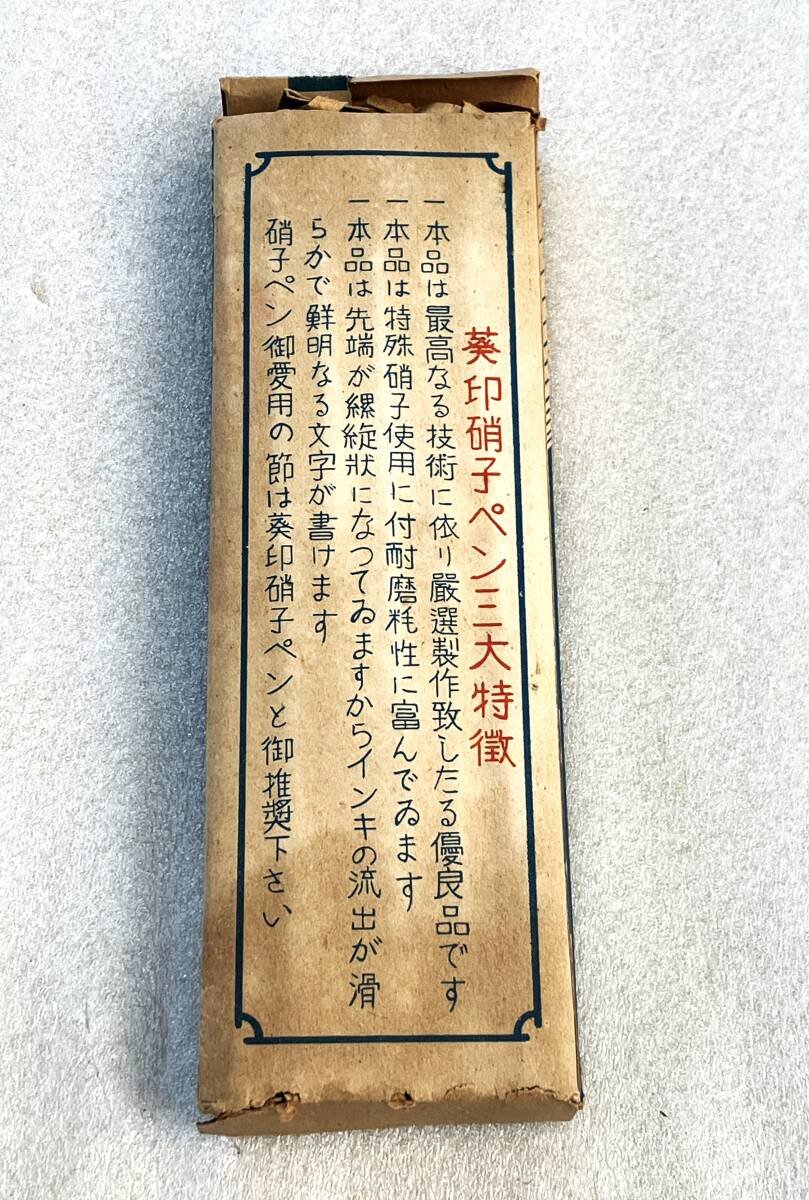 葵印硝子ペン三大特徴
一本品は最高なる技術に依り嚴選製作致したる優良品です
一本品は特殊硝子使用に付耐磨粍性に富んでゐます
一本品は先端が縲縦狀になつてゐますからインキの流出が滑
らかで鮮明なる文字が書けます
硝子ペン御愛用の節は葵印硝子ペンと御推奬下さい